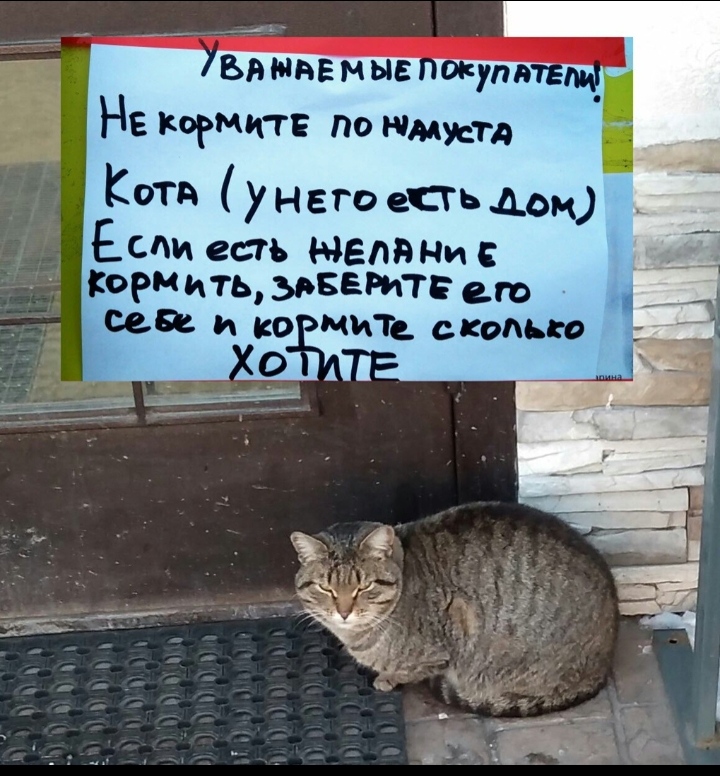 Уважаемые покупатели!
Не кормите пожалуста
Кота (у него есть дом)
Если есть желание
кормить, заберите его
себе и кормите сколько
хотите